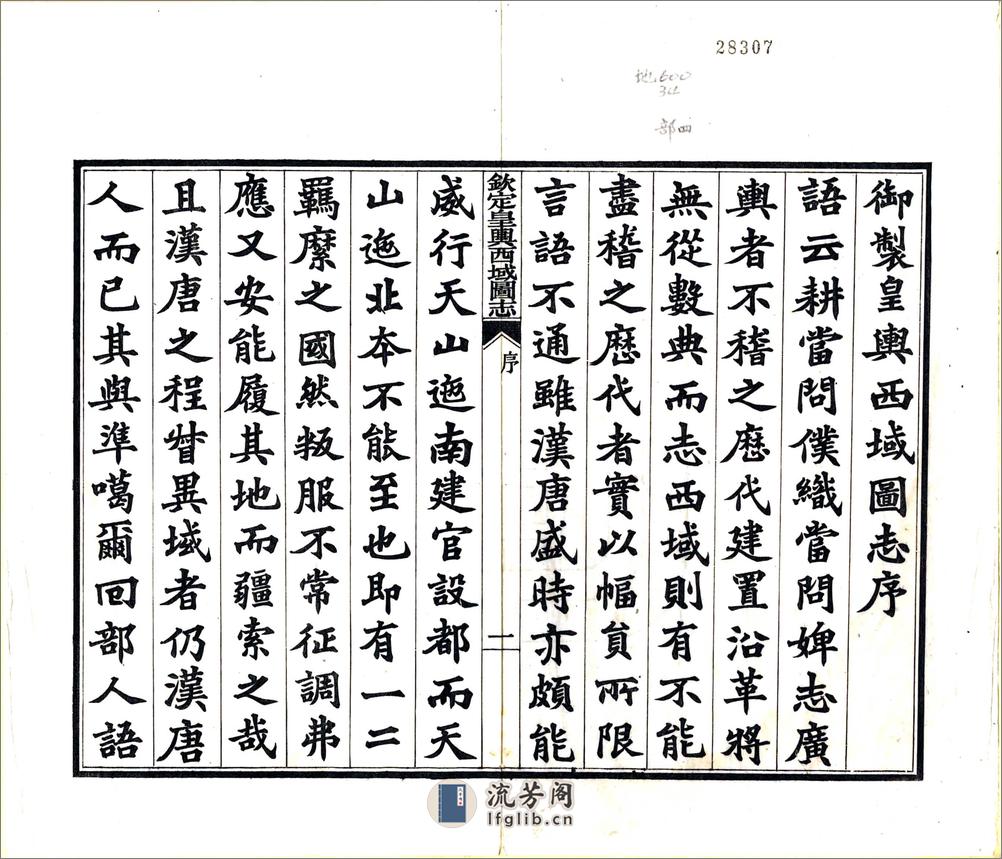 28307
地600
34
部四
御製皇輿西域圖志序
語云耕當問僕織當問婢志廣
輿者不稽之歷代建置沿革將
無從數典而志西域則有不能
盡稽之歷代者實以幅員所限
言語不通雖漢唐盛時亦頗能
欽定皇輿西域圖志
序
一
威行天山迤南建官設都而天
山迤北本不能至也即有一二
羈縻之國然叛服不常征調弗
應又安能履其地而疆索之哉
且漢唐之程督異域者仍漢唐
人而已其與準噶爾回部人語
流芳阁
lfglib.cn